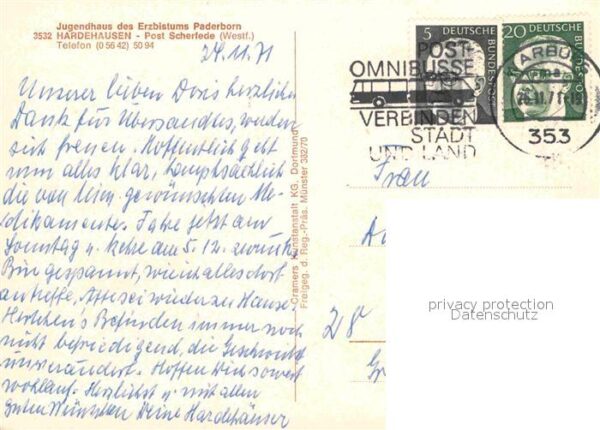 Jugendhaus des Erzbistums Paderborn
3532 HARDEHAUSEN - Post Scherfede (Westf.)
Telefon (0 56 42) 50 94
24.11.71
Unserer lieben Doris herzlichen
Dank für Übersandtes, werden
sich freuen. Hoffentlich geht
nun alles klar, hauptsächlich
die von Ihm gewünschten Me-
dikamente. Fahre jetzt am
Sonntag u. kehre am 5.12. zurück
Bin gespannt, wie ich alles dort
antreffe, sei wieder zu Hause,
Befinden immer noch
nicht befriedigend, die Geschwulst
unverändert. Hoffen Dich soweit
wohlauf. Herzlichst u. mit allen
guten Wünschen Deine Hardehäuser
Cramers Kunstanstalt KG. Dortmund
Freigeg. d. Reg.-Präs. Münster 382/70
5
DEUTSCHE BUNDESPOST
20
DEUTSCHE BUNDESPOST
POST-
OMNIBUSSE
VERBINDEN
STADT
UND LAND
WARBURG
353
Frau
28
privacy protection
Datenschutz